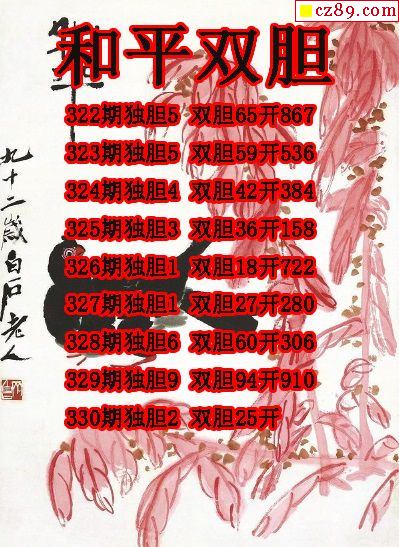 cz89.com
和平双胆
322期独胆5 双胆65开867
323期独胆5 双胆59开536
324期独胆4 双胆42开384
325期独胆3 双胆36开158
326期独胆1 双胆18开722
327期独胆1 双胆27开280
328期独胆6 双胆60开306
329期独胆9 双胆94开910
330期独胆2 双胆25开
九十二岁白石老人